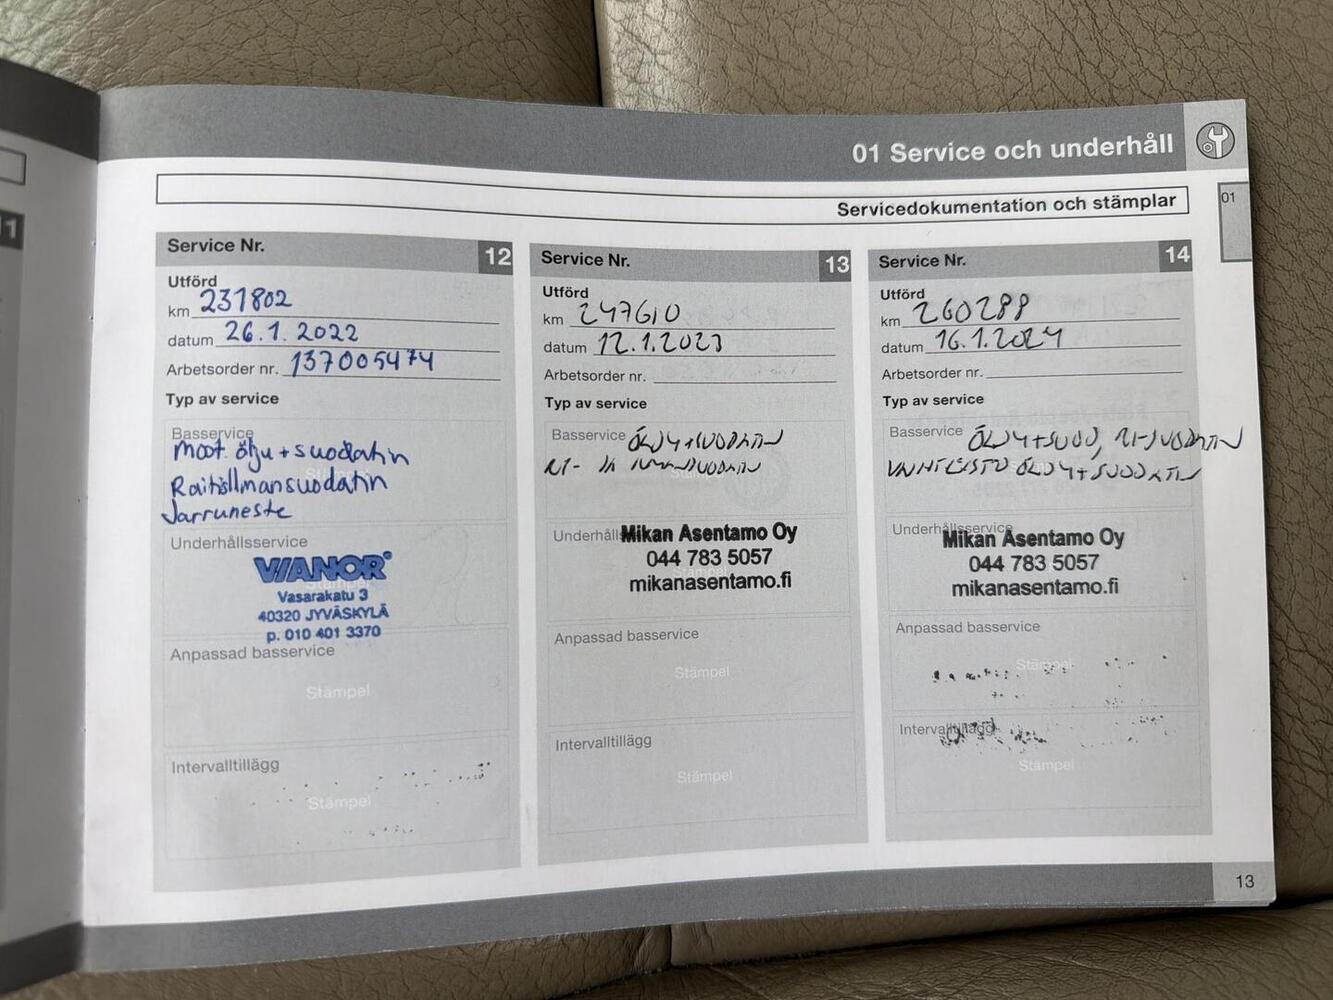 01 Service och underhåll
01
Servicedokumentation och stämplar
11
Service Nr. 12
Utförd
km 231802
datum 26.1.2022
Arbetsorder nr. 137005474
Typ av service
Basservice
Moot. öljy + suodatin
Raitisilmansuodatin
Jarruneste
Underhållsservice
VIANOR
Stämpel
Vasarakatu 3
40320 JYVÄSKYLÄ
p. 010 401 3370
Anpassad basservice
Stämpel
Intervalltillägg
Stämpel
Service Nr. 13
Utförd
km 247610
datum 12.1.2023
Arbetsorder nr.
Typ av service
Basservice ÖLJY+SUODATIN
Stämpel
Underhålls
Mikan Asentamo Oy
044 783 5057
Stämpel
mikanasentamo.fi
Anpassad basservice
Stämpel
Intervalltillägg
Stämpel
Service Nr. 14
Utförd
km 260288
datum 16.1.2024
Arbetsorder nr.
Typ av service
Basservice ÖLJY+SUOD, RI-SUODATIN
VAIHTEISTO ÖLJY+SUODATIN
Underhållsservice
Mikan Asentamo Oy
044 783 5057
mikanasentamo.fi
Anpassad basservice
Stämpel
Intervalltillägg
Stämpel
13